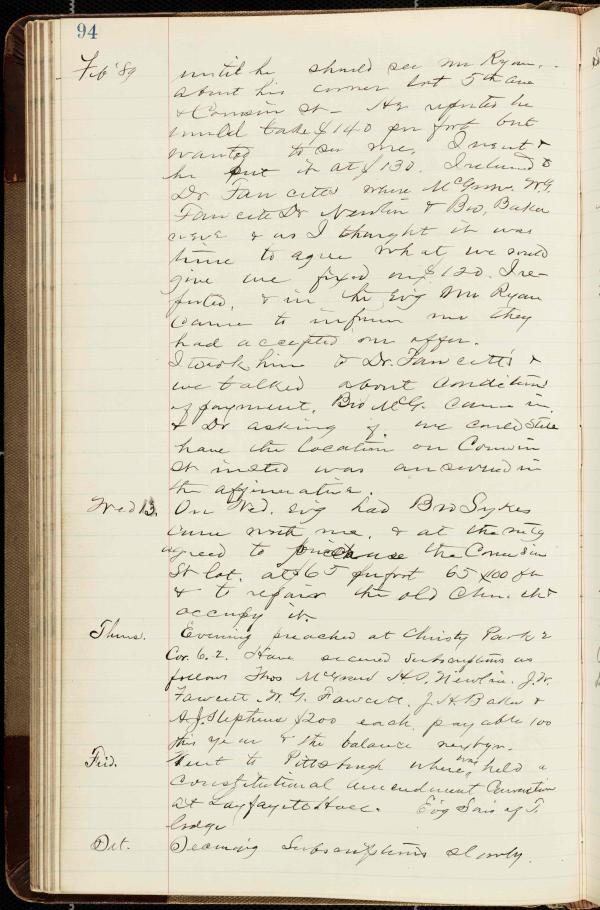 94
Feb '89 until he should see Mr Ryan.
about his corner lot 5th ave
& Cousin St - He reported he
would take $140 per foot but
wanted to see me. I went &
he put it at $130. I returned to
Dr Fawcetts where McGraw. W.G.
Fawcett Dr Newlin & Bro. Baker
were & as I thought it was
time to agree what we would
give we fixed on $120. I re-
ported, & in the Ev'g Mr Ryan
came to inform me they
had accepted our offer.
I took him to Dr. Fawcetts &
we talked about conditions
of payment. Bro McG. came in,
& Dr asking if we could still
have the location on Cousin
St insted was answered in
the affirmative.
Wed 13. On Wed. evg had Bro Sykes
came with me. & at the mtg
agreed to purchase the Cousin
St lot. at $65 pr foot 65 x 100 ft
& to repair the old Chu. &
occupy it.
Thurs. Evening preached at Christy Park 2
Cor. 6.2. Have secured subscriptions as
follows Thos McGraw H.O. Newlin. J.W.
Fawcett. W. G. Fawcett. J. H. Baker &
A.J. Stephens $200 each payable 100
this year & the balance next yr.
Frid. Went to Pittsburgh where was held a
Constitutional amendment Convention
at Layfayette Hall. Ev'g Sois of T.
lodge
Sat. Securing Subscriptions slowly.